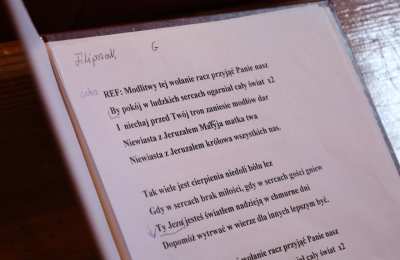 G
REF: Modlitwy tej wołanie racz przyjąć Panie nasz
By pokój w ludzkich sercach ogarniał cały świat x2
I niechaj przed Twój tron zaniesie modłów dar
Niewiasta z Jeruzalem Maryja matka twa
Niewiasta z Jeruzalem królowa wszystkich nas.
Tak wiele jest cierpienia niedoli bólu łez
Gdy w sercach brak miłości, gdy w sercach gości gniew
Ty Jezu jesteś światłem nadzieją w chmurne dni
Dopomóż wytrwać w wierze dla innych lepszym być.
wołanie racz przyjąć Panie nasz
sercach ogarniał cały świat x2